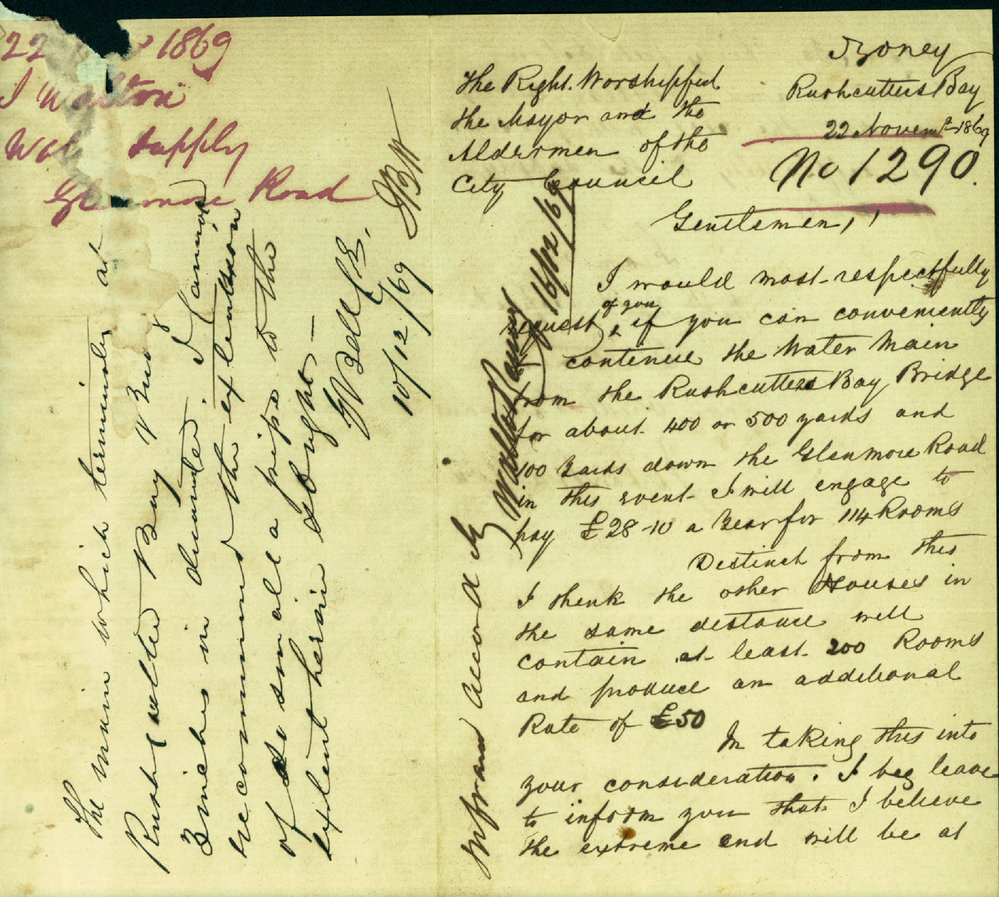 22 1869
J Walton
Water Supply
Glenmore Road
The main which terminates at
Rush Cutter Bay Bridge is
3 inches in diameter. I cannot
recommend the extension
of so small a pipe to the
extent herein sought—
E Bell C.E.
10/12/69
Inform accordingly
16/12/69
Sydney
Rushcutters Bay
22 Novemr 1869
No 1290.
The Right Worshipful
the Mayor and the
Aldermen of the
City Council
Gentlemen,
I would most respectfully
request of you, if you can conveniently
contenue the Water Main
from the Rushcutters Bay Bridge
for about 400 or 500 yards and
100 yards down the Glenmore Road
in this event I will engage to
pay £28-10 a Year for 114 Rooms
Destinct from this
I thenk the other Houses in
the same distance will
contain at least 200 Rooms
and produce an additional
Rate of £50
In taking this into
your consideration. I beg leave
to inform you that I believe
the extreme end will be at